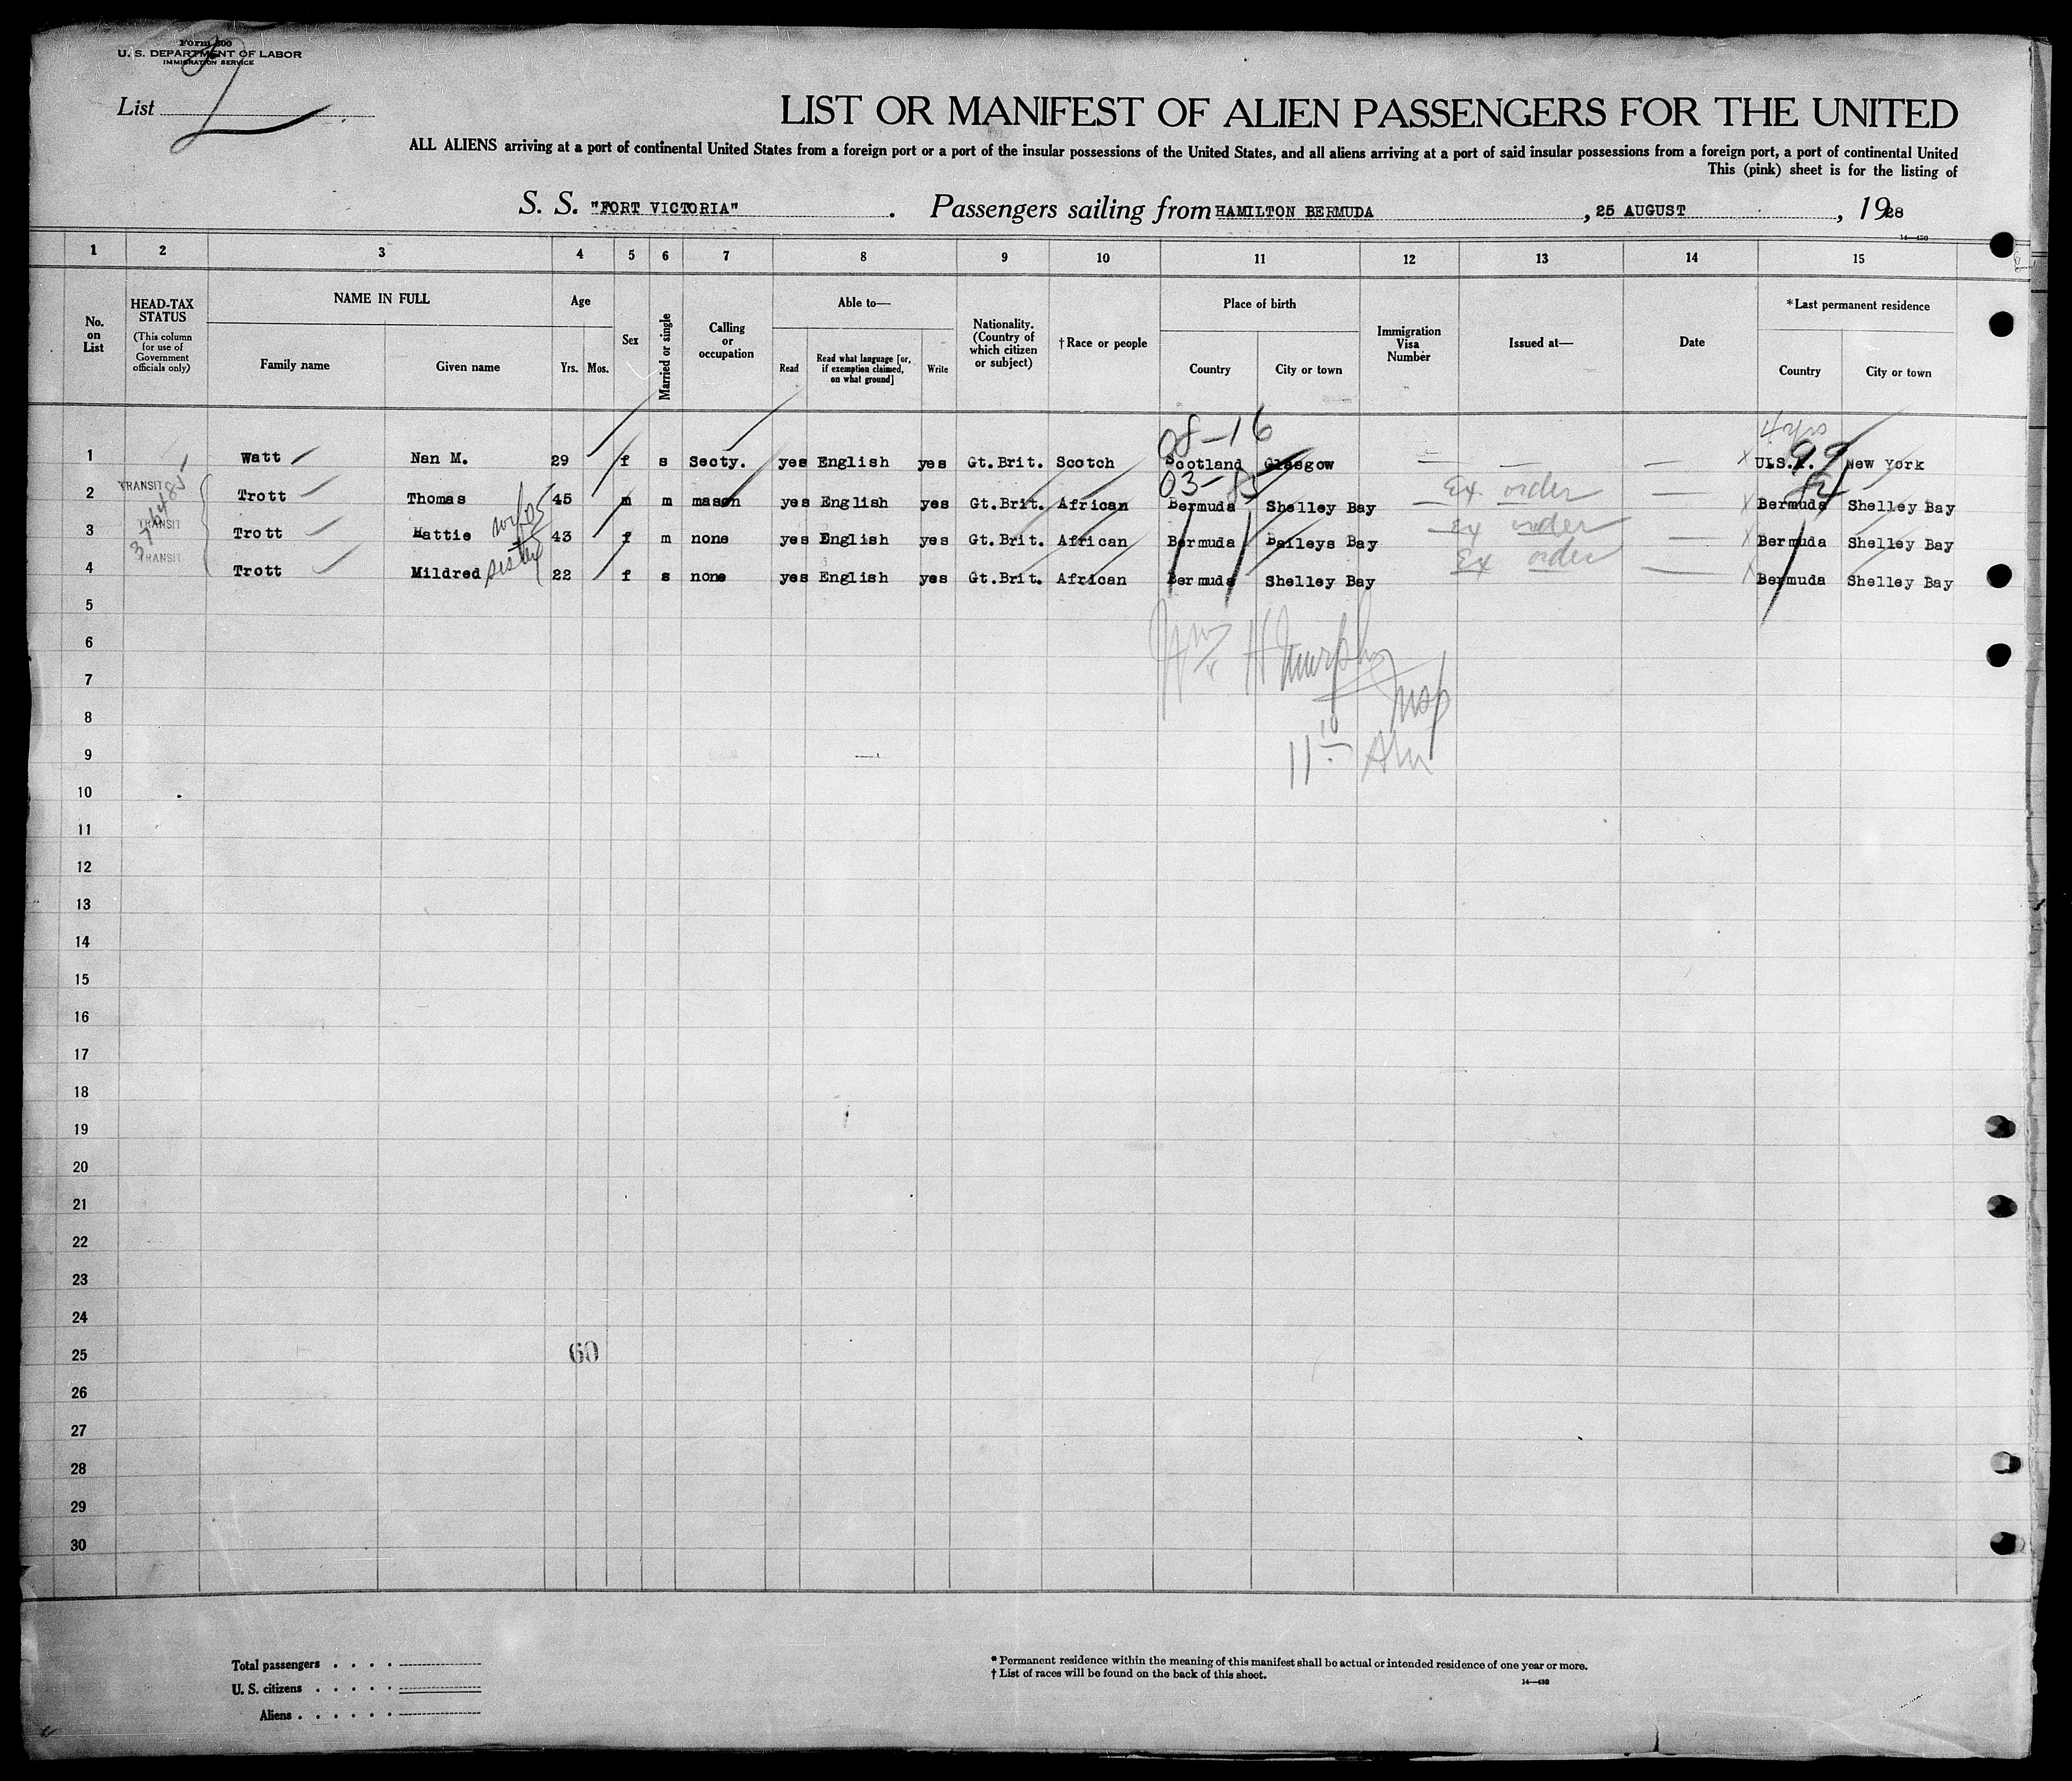 Form 500
U. S. DEPARTMENT OF LABOR
IMMIGRATION SERVICE
List
LIST OR MANIFEST OF ALIEN PASSENGERS FOR THE UNITED
ALL ALIENS arriving at a port of continental United States from a foreign port or a port of the insular possessions of the United States, and all aliens arriving at a port of said insular possessions from a foreign port, a port of continental United
This (pink) sheet is for the listing of
S. S. "FORT VICTORIA" . Passengers sailing from HAMILTON BERMUDA , 25 AUGUST , 1928
14—430
1 2 3 4 5 6 7 8 9 10 11 12 13 14 15
No. on List
HEAD-TAX STATUS
(This column for use of Government officials only)
NAME IN FULL
Family name Given name
Age
Yrs. Mos.
Sex
Married or single
Calling or occupation
Able to—
Read Read what language [or, if exemption claimed, on what ground] Write
Nationality. (Country of which citizen or subject)
†Race or people
Place of birth
Country City or town
Immigration Visa Number
Issued at—
Date
*Last permanent residence
Country City or town
08-16 4 yrs
1 Watt Nan M. 29 f s Secty. yes English yes Gt.Brit. Scotch Scotland Glasgow U.S.A. 99 New York
03-85
2 TRANSIT Trott Thomas 45 m m mason yes English yes Gt.Brit. African Bermuda Shelley Bay Ex order Bermuda Shelley Bay
3 TRANSIT Trott Hattie wife 43 f m none yes English yes Gt.Brit. African Bermuda Baileys Bay Ex order Bermuda Shelley Bay
4 TRANSIT Trott Mildred sister 22 f s none yes English yes Gt.Brit. African Bermuda Shelley Bay Ex order Bermuda Shelley Bay
5
6 Wm H Murphy
7 Insp
8
9 11 10 AM
10
11
12
13
14
15
16
17
18
19
20
21
22
23
24
25 60
26
27
28
29
30
Total passengers . . . .
U. S. citizens . . . . .
Aliens . . . . . .
* Permanent residence within the meaning of this manifest shall be actual or intended residence of one year or more.
† List of races will be found on the back of this sheet.
14—430